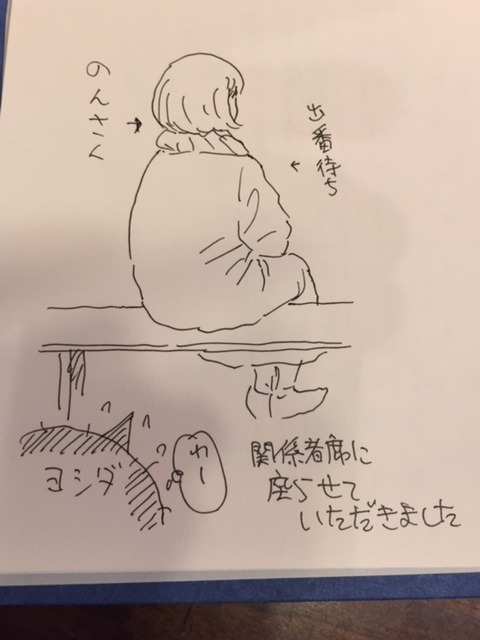 のんさん
出番待ち
ヨシダ
わー
関係者席に
座らせて
いただきました